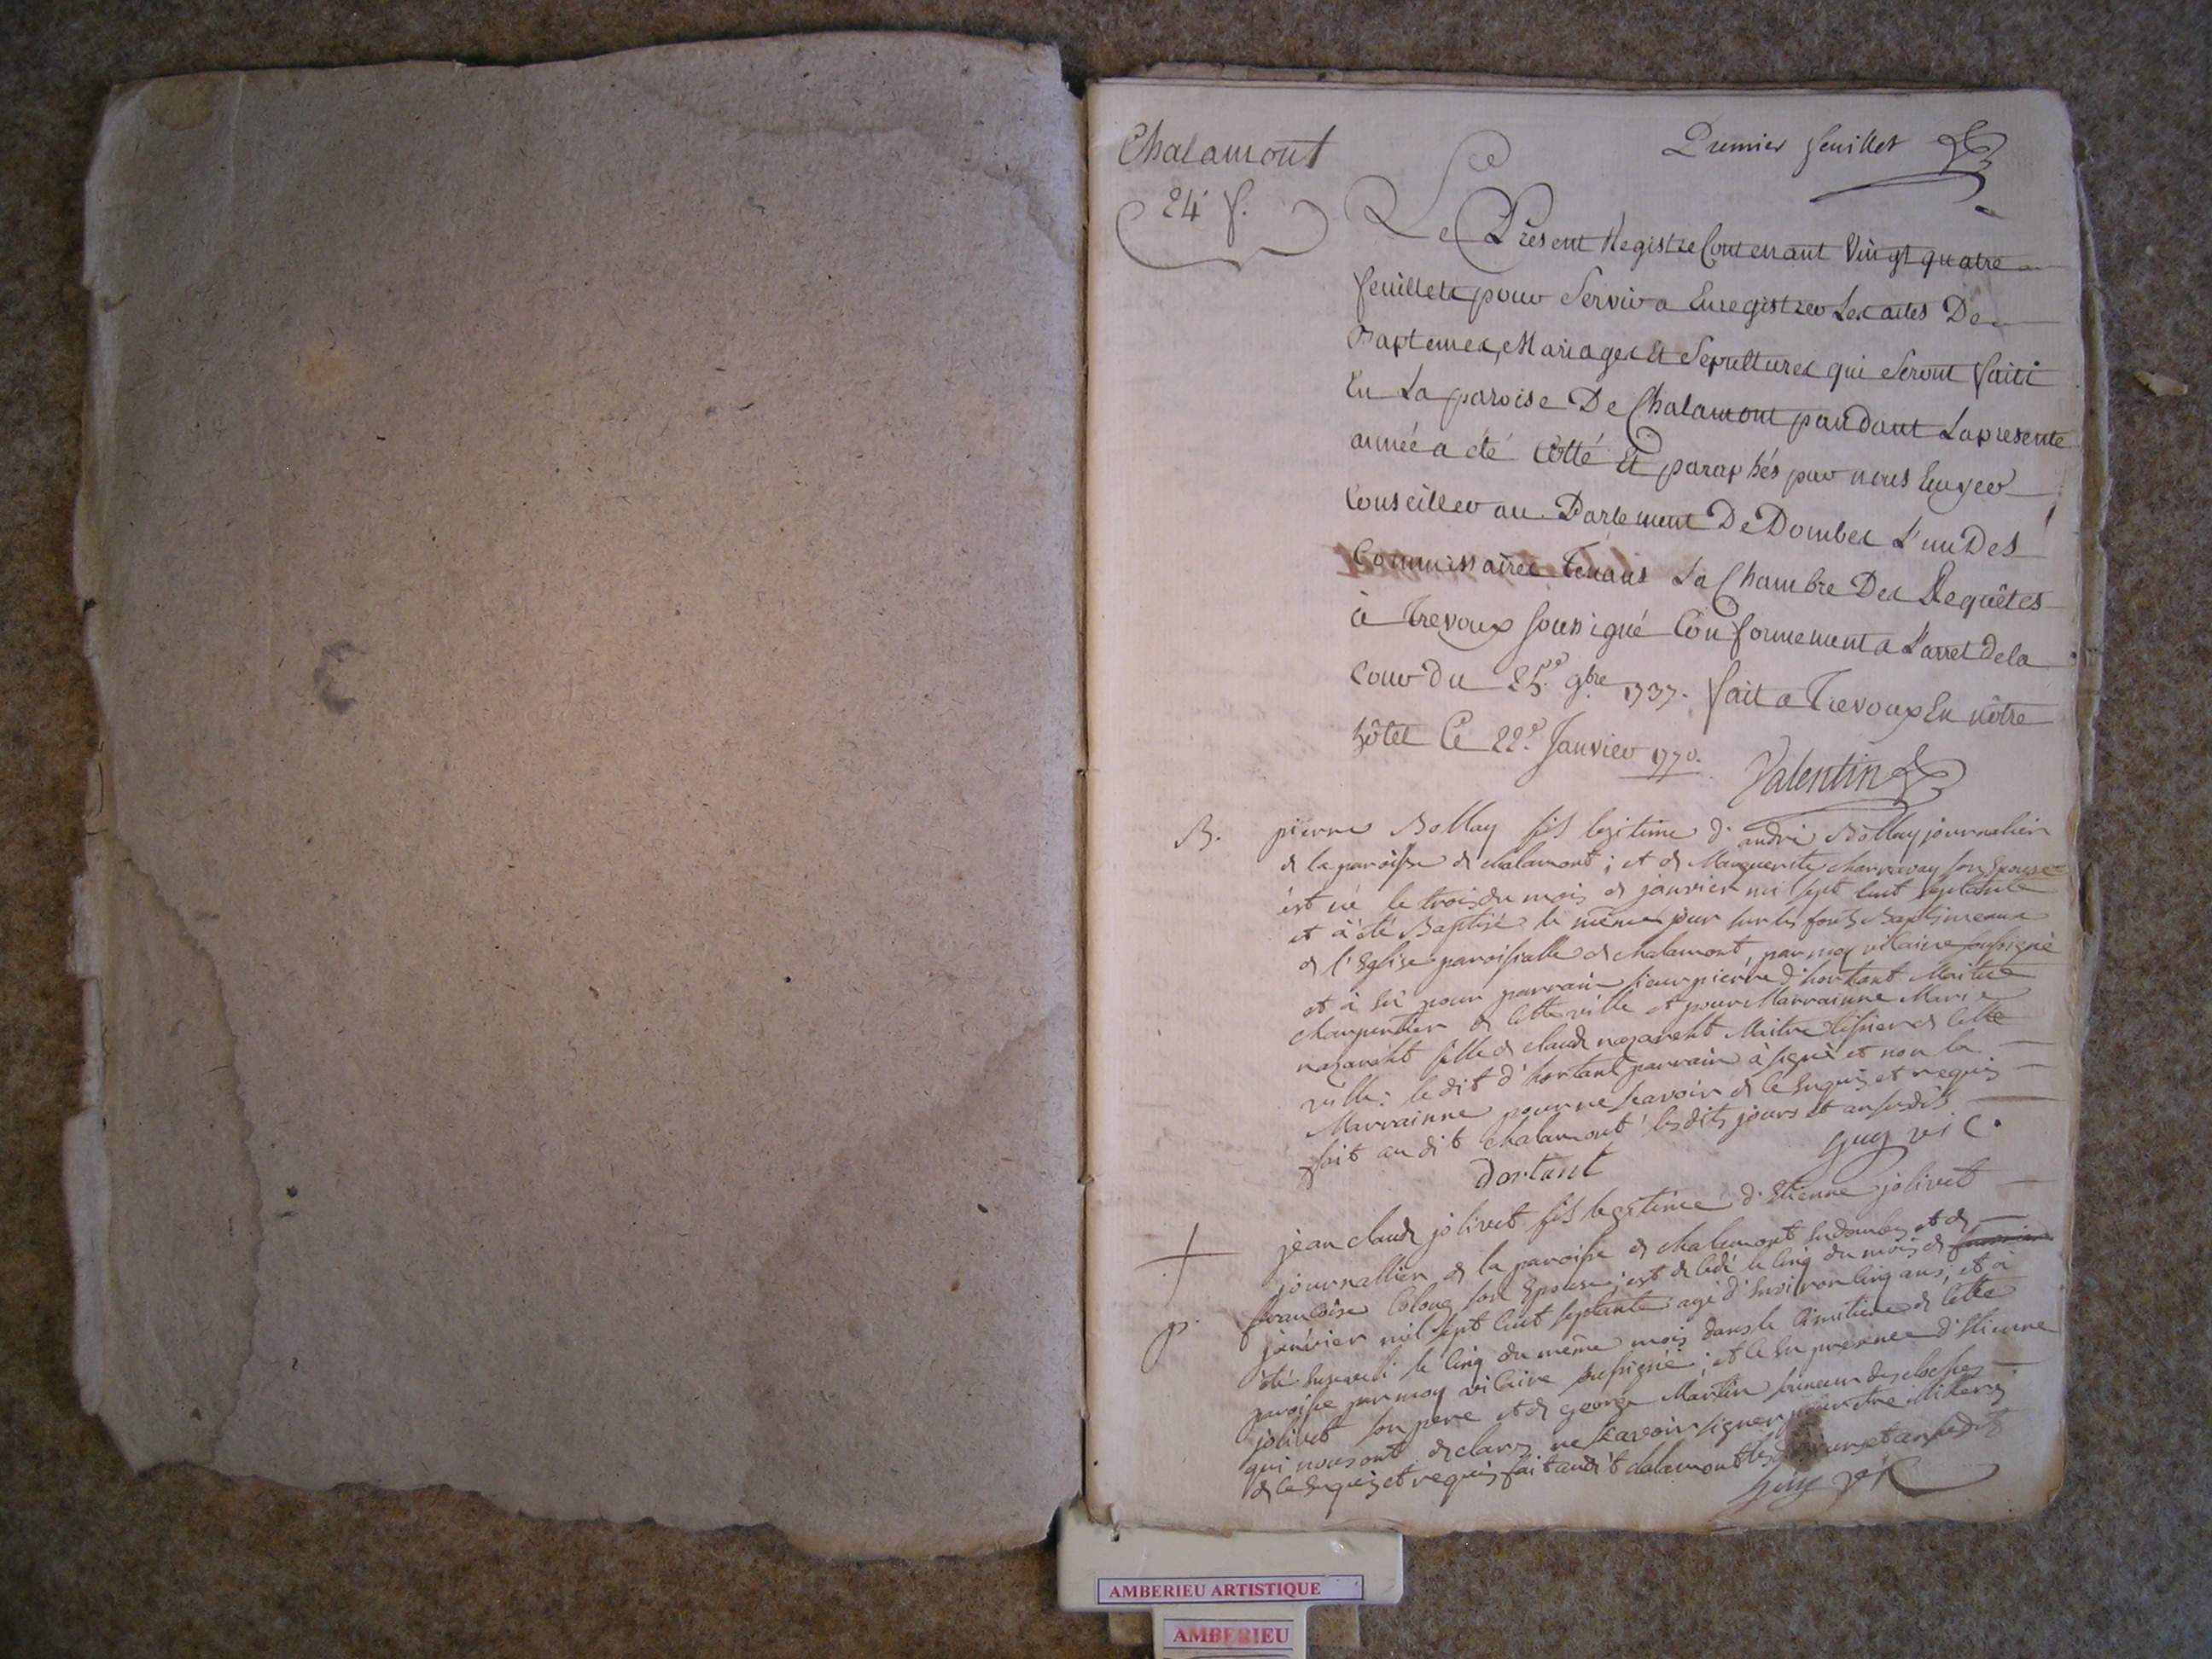 Chalamont
24 f.
Premier feuillet
Le Présent Registre Contenant Vingt quatre
feuillets pour Servir a Enregistrer Les actes De
Baptemes, Mariages Et Sepultures qui Seront faits
En La paroise De Chalamont pandant La presente
année a été Cotté Et paraphés par nous Ecuyer
Conseiller au Parlement De Dombes L'un Des
Commissaires Tenans La Chambre Des Requêtes
à Trevoux soussigné Conformement a L'arret de la
Cour du 25.e 9bre 1737. fait a Trevoux En nôtre
hôtel Ce 22.e Janvier 1770.
Valentin
B. pierre Bollay fils legitime d'andré Bollay journalier
de la paroisse de chalamont ; et de Marguerite charnavay son Epouse
est né le trois du mois de janvier mil sept cent septante
et à été Baptisé le même jour sur les fonts Baptismeaux
de l'Eglise paroissialle de chalamont, par moy vicaire soussigné
et à eû pour parrain sieur pierre d'hortant Maitre
charpentier de cette ville et pour Marrainne Marie
nazareht fille de claude nazareht Maitre tissier de cette
ville : le dit d'hortant parrain à signé et non la
Marrainne pour ne scavoir de ce Enquis et requis
fait au dit chalamont les dits jours et an susdits
dortant
guy vic.
jean claude jolivet fils legitime d'Etienne jolivet
journallier de la paroisse de chalamont En dombes et de
françoise son Epouse ; est decedé le cinq du mois de
janvier mil sept cent septante agé d'Environ cinq ans, et à
été Enseveli le cinq du même mois dans le cimitiere de cette
paroisse par moy vicaire soussigné ; et ce En presence d'Etienne
jolivet son pere et de george Martin sonneur des cloches
qui nous ont declarez ne scavoir signer pour etre illiterez
de ce Enquis et requis fait audit chalamont les jours et an susdits
guy vic
AMBERIEU ARTISTIQUE
AMBERIEU